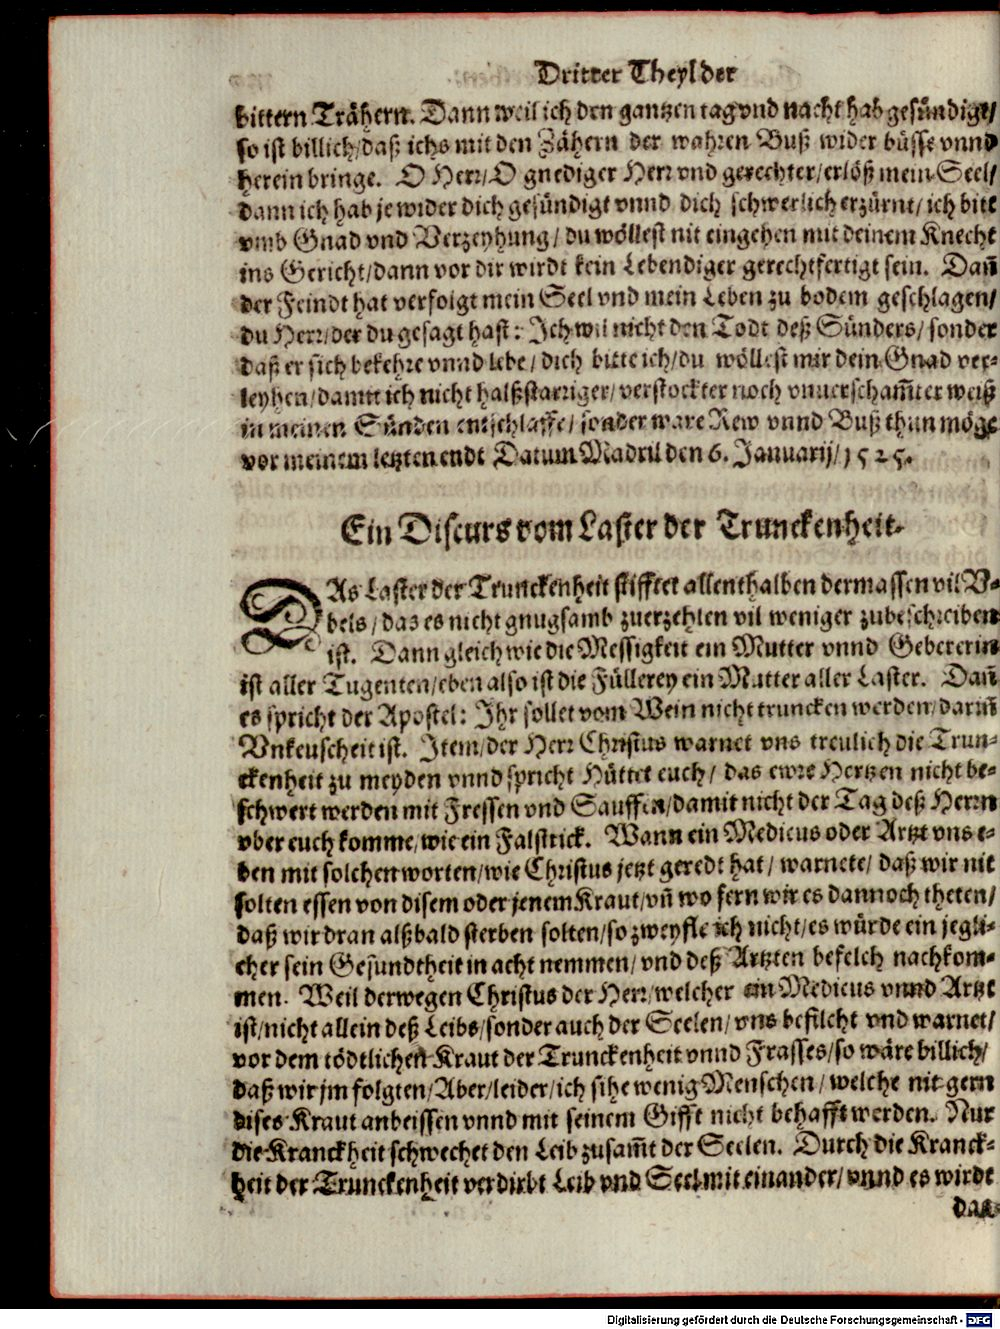 Dritter Theyl der
bittern Trähern. Dann weil ich den gantzen tag vnd nacht hab gesündigt/
so ist billich/daß ichs mit den Zähern der wahren Buß wider büsse vnnd
herein bringe. O Herr/O gnediger Herr vnd gerechter/erlöß mein Seel/
dann ich hab je wider dich gesündigt vnnd dich schwerlich erzürnt/ich bitt
vmb Gnad vnd Verzeyhung/du wöllest nit eingehen mit deinem Knecht
ins Gericht/dann vor dir wirdt kein Lebendiger gerechtfertigt sein. Dañ
der Feindt hat verfolgt mein Seel vnd mein Leben zu bodem geschlagen/
du Herr/der du gesagt hast: Ich wil nicht den Todt deß Sünders/sonder
daß er sich bekehre vnnd lebe/dich bitte ich/du wöllest mir dein Gnad ver-
leyhen/damit ich nicht halßstarriger/verstockter noch vnuerscham̃ter weiß
in meinen Sünden entschlaffe/sonder ware Rew vnnd Buß thun möge
vor meinem letzten endt Datum Madril den 6. Januarij/1525.
Ein Discurs vom Laster der Trunckenheit.
DAs Laster der Trunckenheit stifftet allenthalben dermassen vil V-
bels/das es nicht gnugsamb zuerzehlen vil weniger zubeschreiben
ist. Dann gleich wie die Messigkeit ein Mutter vnnd Gebererin
ist aller Tugenten/eben also ist die Füllerey ein Mutter aller Laster. Dañ
es spricht der Apostel: Ihr sollet vom Wein nicht truncken werden/dariñ
Vnkeuscheit ist. Item/der Herr Christus warnet vns treulich die Trun-
ckenheit zu meyden vnnd spricht Hüttet euch/das ewre Hertzen nicht be-
schwert werden mit Fressen vnd Sauffen/damit nicht der Tag deß Herrn
vber euch komme/wie ein Falstrick. Wann ein Medicus oder Artzt vns e-
ben mit solchen worten/wie Christus jetzt geredt hat/warnete/daß wir nit
solten essen von disem oder jenem Kraut/vñ wo fern wir es dannoch theten/
daß wir dran alßbald sterben solten/so zweyfle ich nicht/es würde ein jegli-
cher sein Gesundtheit in acht nemmen/vnd deß Artzten befelch nachkom-
men. Weil derwegen Christus der Herr/welcher ein Medicus vnnd Artzt
ist/nicht allein deß Leibs/sonder auch der Seelen/vns befilcht vnd warnet/
vor dem tödtlichen Kraut der Trunckenheit vnnd Frasses/so wäre billich/
daß wir jm folgten/Aber/leider/ich sihe wenig Menschen/welche nit gern
dises Kraut anbeissen vnnd mit seinem Gifft nicht behafft werden. Nur
die Kranckheit schwechet den Leib zusam̃t der Seelen. Durch die Kranck-
heit der Trunckenheit verdirbt Leib vnd Seel mit einander/vnnd es wirdt
das
Digitalisierung gefördert durch die Deutsche Forschungsgemeinschaft - DFG